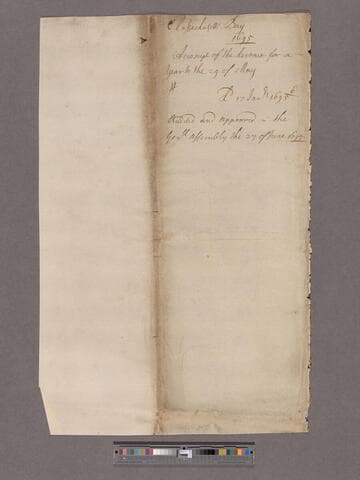 Bay
1695
Accompt of the revenue for a
year to the 29 of May
Rd 17 Janry 1695/6
Audited and approved in the
Genll assembly the 27 of June 1699